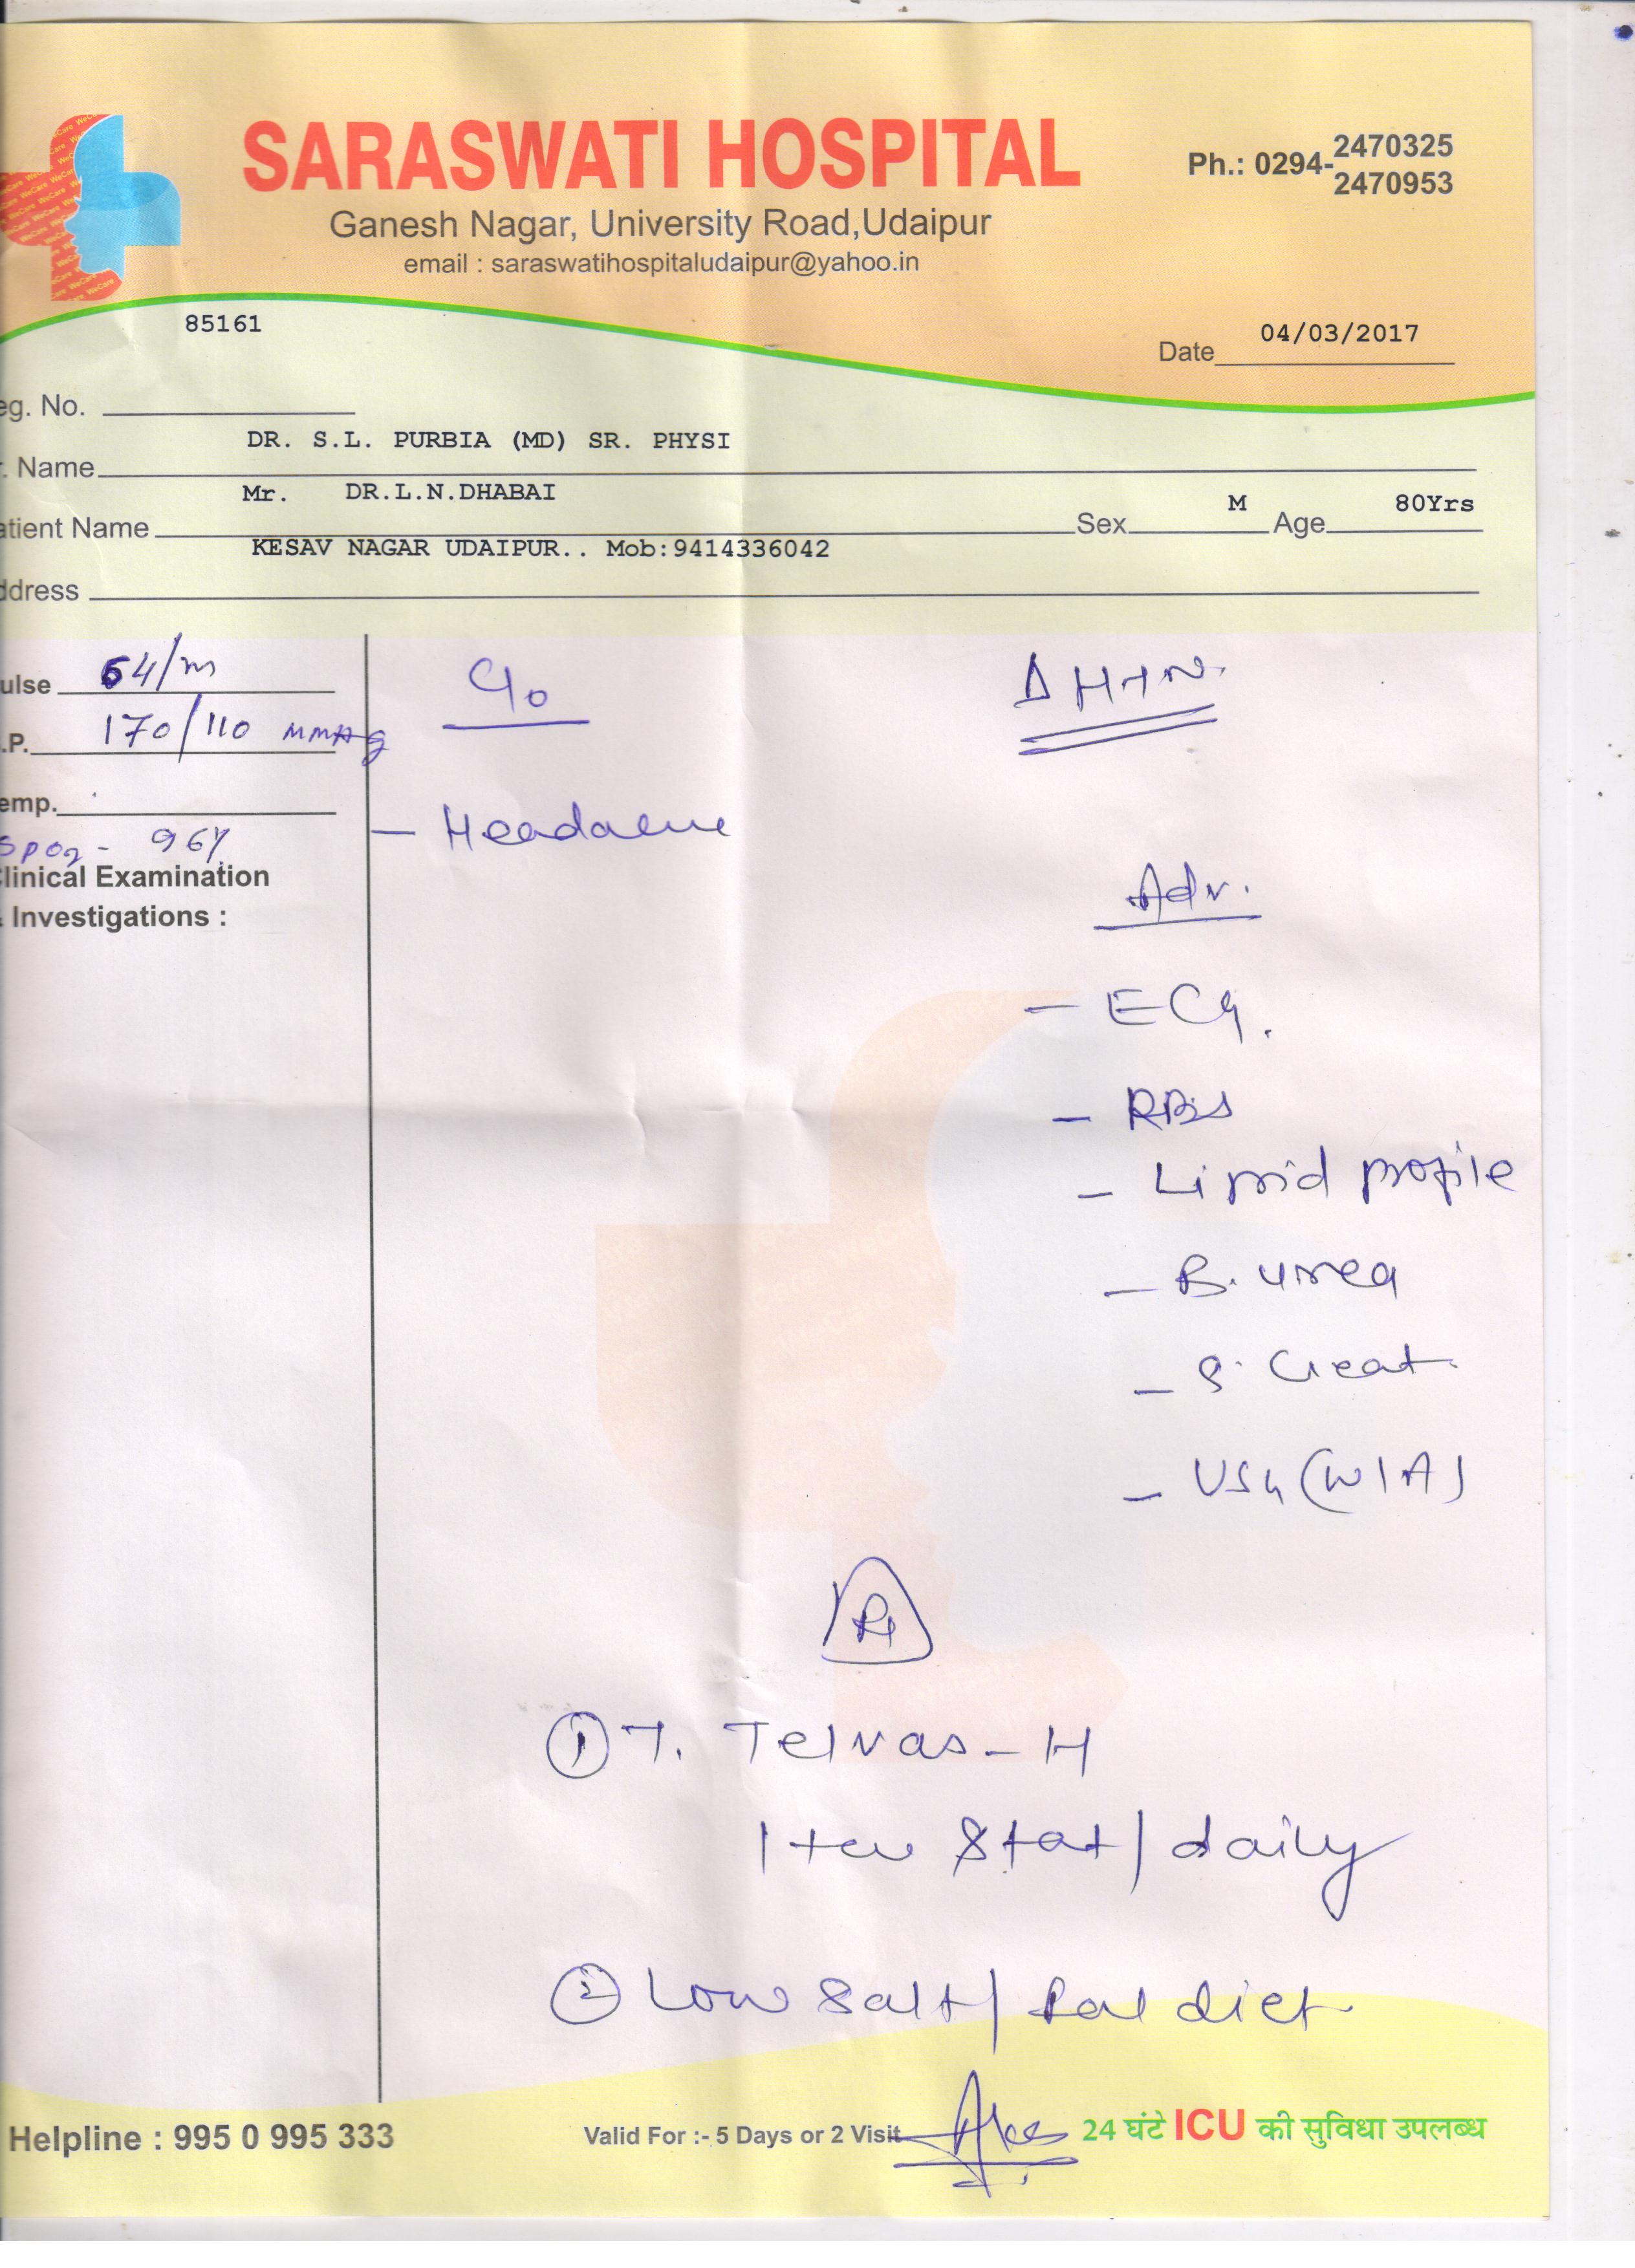 SARASWATI HOSPITAL
Ph.: 0294- 2470325
2470953
Ganesh Nagar, University Road,Udaipur
email : saraswatihospitaludaipur@yahoo.in
85161
Date 04/03/2017
eg. No.
DR. S.L. PURBIA (MD) SR. PHYSI
. Name
Mr. DR.L.N.DHABAI
atient Name Sex M Age 80Yrs
KESAV NAGAR UDAIPUR.. Mob:9414336042
ddress
ulse 64/m
C/o
Δ HTN.
.P. 170/110 mmHg
emp.
- Headache
SpO2 - 96%
linical Examination
Investigations :
Adv.
- ECG.
- RBS
- Lipid profile
- B. urea
- S. Creat.
- USG (W/A)
Rx
① T. Telvas-H
1 tab Stat/daily
② Low Salt/ fat diet
Helpline : 995 0 995 333
Valid For :- 5 Days or 2 Visit
24 घंटे ICU की सुविधा उपलब्ध